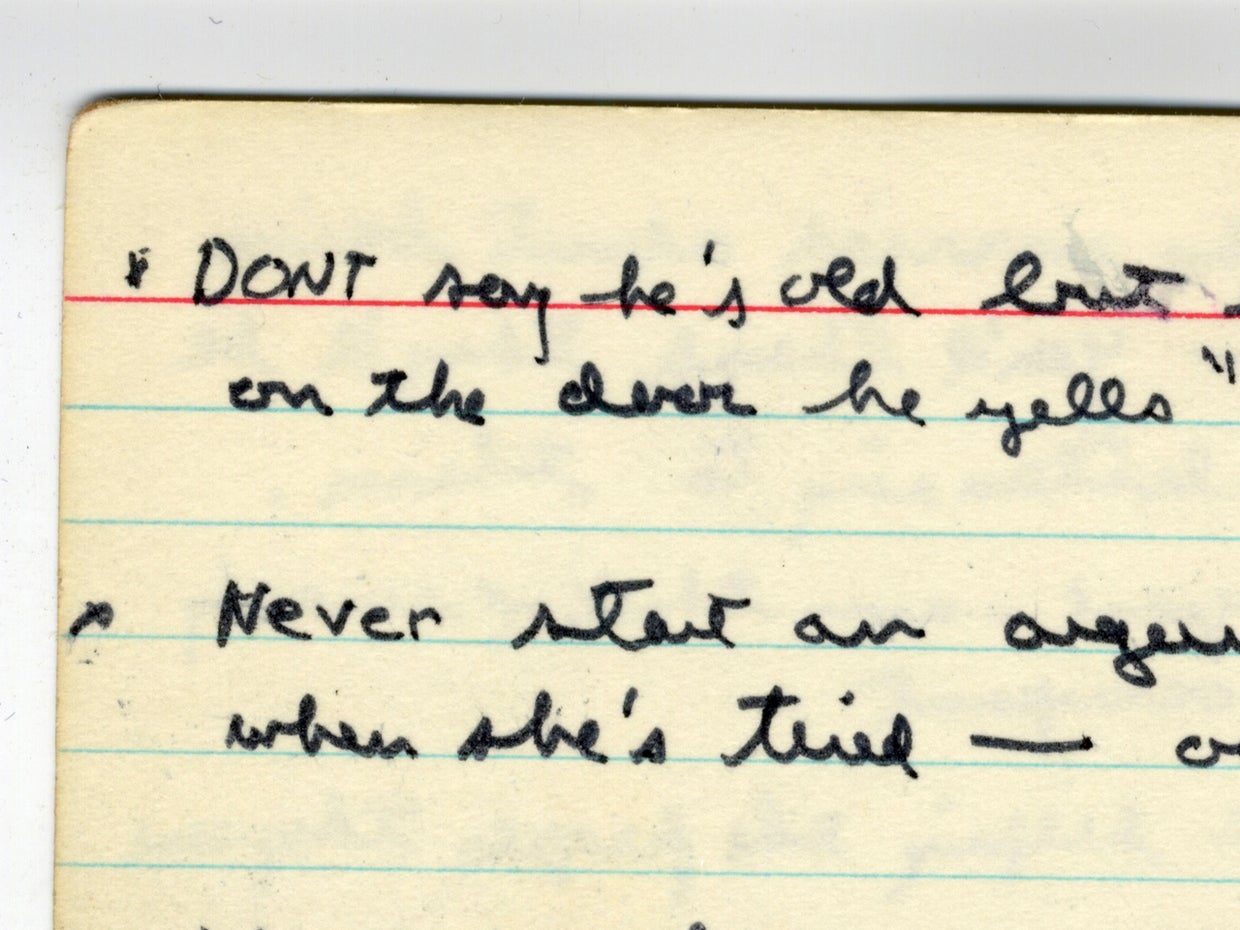 DONT say he's old but
on the door he yells "
Never start an
when she's tired —